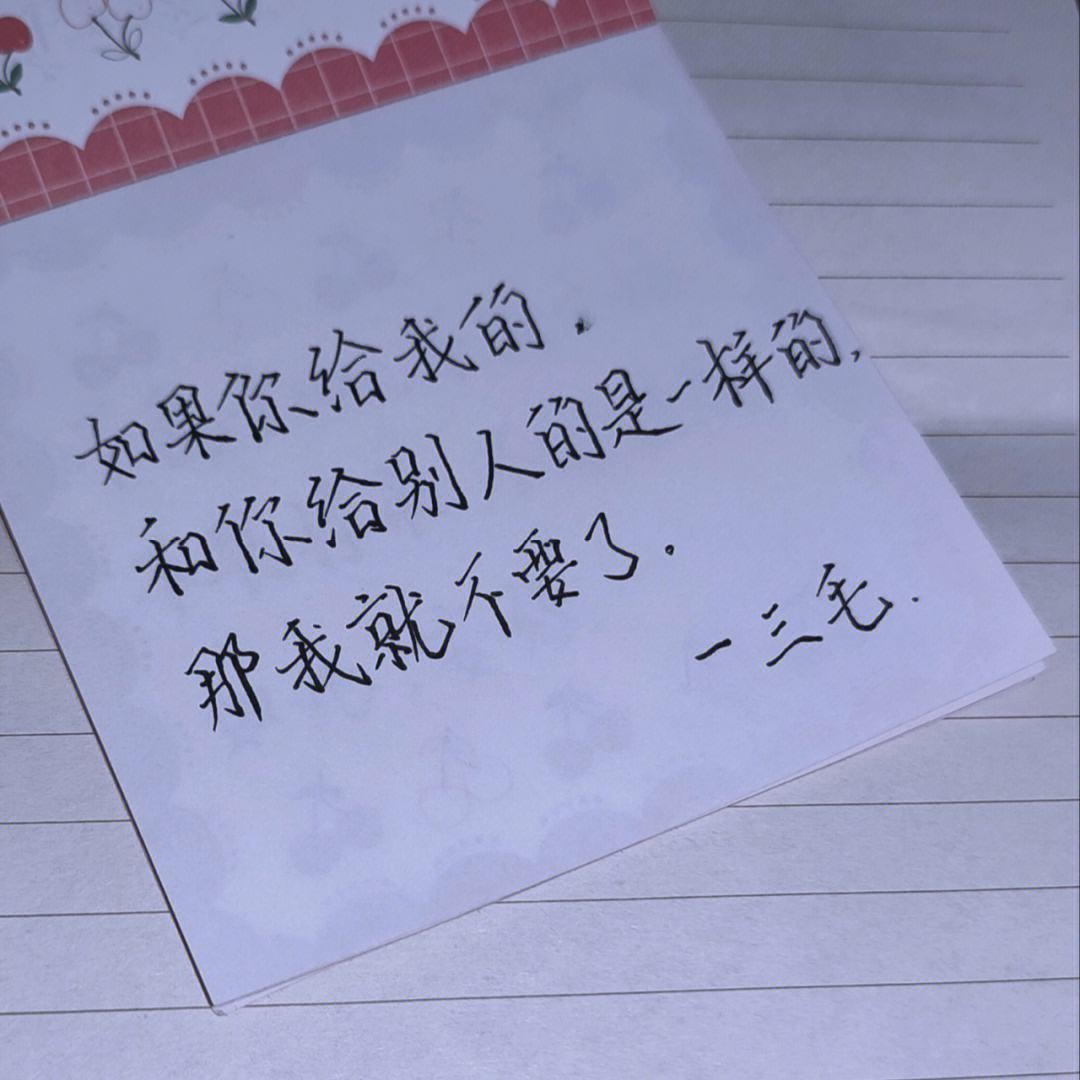 如果你给我的.
和你给别人的是一样的,
那我就不要了.
一三毛.